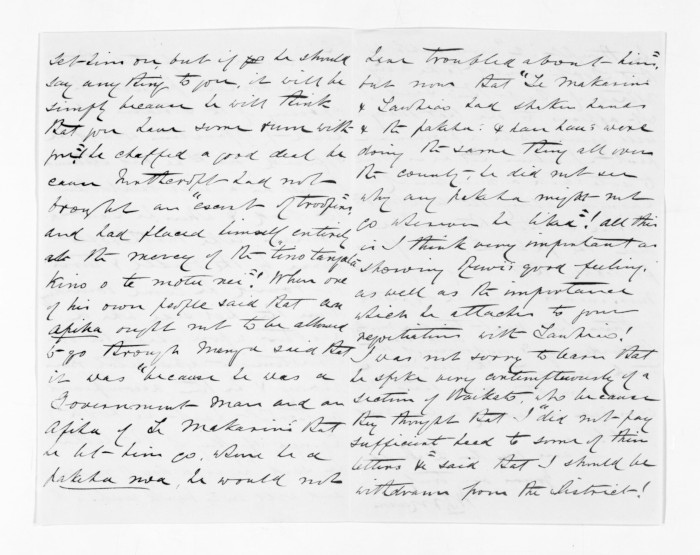 let him on, but if he should
say anything to you, it will be
simply because he will think
that you have some rum with
you"! he chaffed a good deal be
cause Mothcroft had not
brought an "escort of troopers"
and had placed himself entirely
at the mercy of the "tino tangata
kino o te motu nei"! When one
of his own people said that an
apiha ought not to be allowed
to go through Manga said that
it was "because he was a
Government man and an
Apiha of Te Makarini's that
he let him go, were he a
pakeha noa, he would not
have troubled about him",
but now that "Te Makarini
& Tawhiao had shaken hands
& the pakeha: & hau haus were
doing the same thing all over
the country, he did not see
why any pakeha might not
go wherever he liked"! all this
is I think very important as
showing Rewi's good feeling,
as well as the importance
which he attaches to your
negotiations with Tawhiao!
I was not sorry to learn that
he spoke very contemptuously of a
section of Waikato, who because
they thought that I "did not pay
sufficient heed to some of their
letters &c" said that I should be
withdrawn from the District!